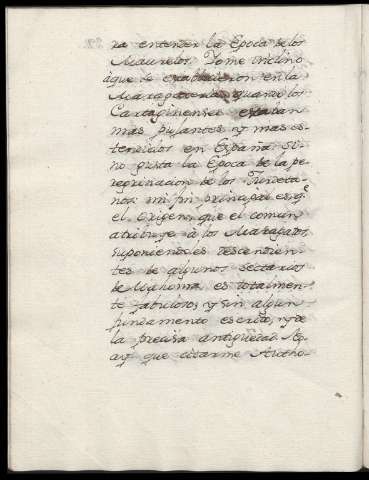 ra entender la Epoca de los
Maurelos. Yo me inclino
à que se establecieron en la
Maragateria quando los
Cartaginenses estaban
mas pujantes, y mas es-
tendidos en España. Si
no gusta la Epoca de la pe-
regrinacion de los Turdeta-
nos: mi fin principal es, qᵉ
el Origen, que el comun
atribuye à los Maragatos,
suponiendoles descendien-
tes de algunos sectarios
de Mahoma, es totalmen-
te fabuloso, y sin algun
fundamento escrito, y de
la precisa antiguedad.
ay que citarme Autho-